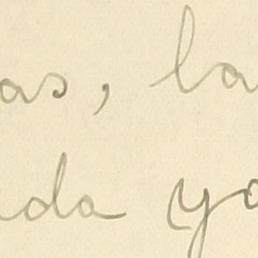 as, la
da yo